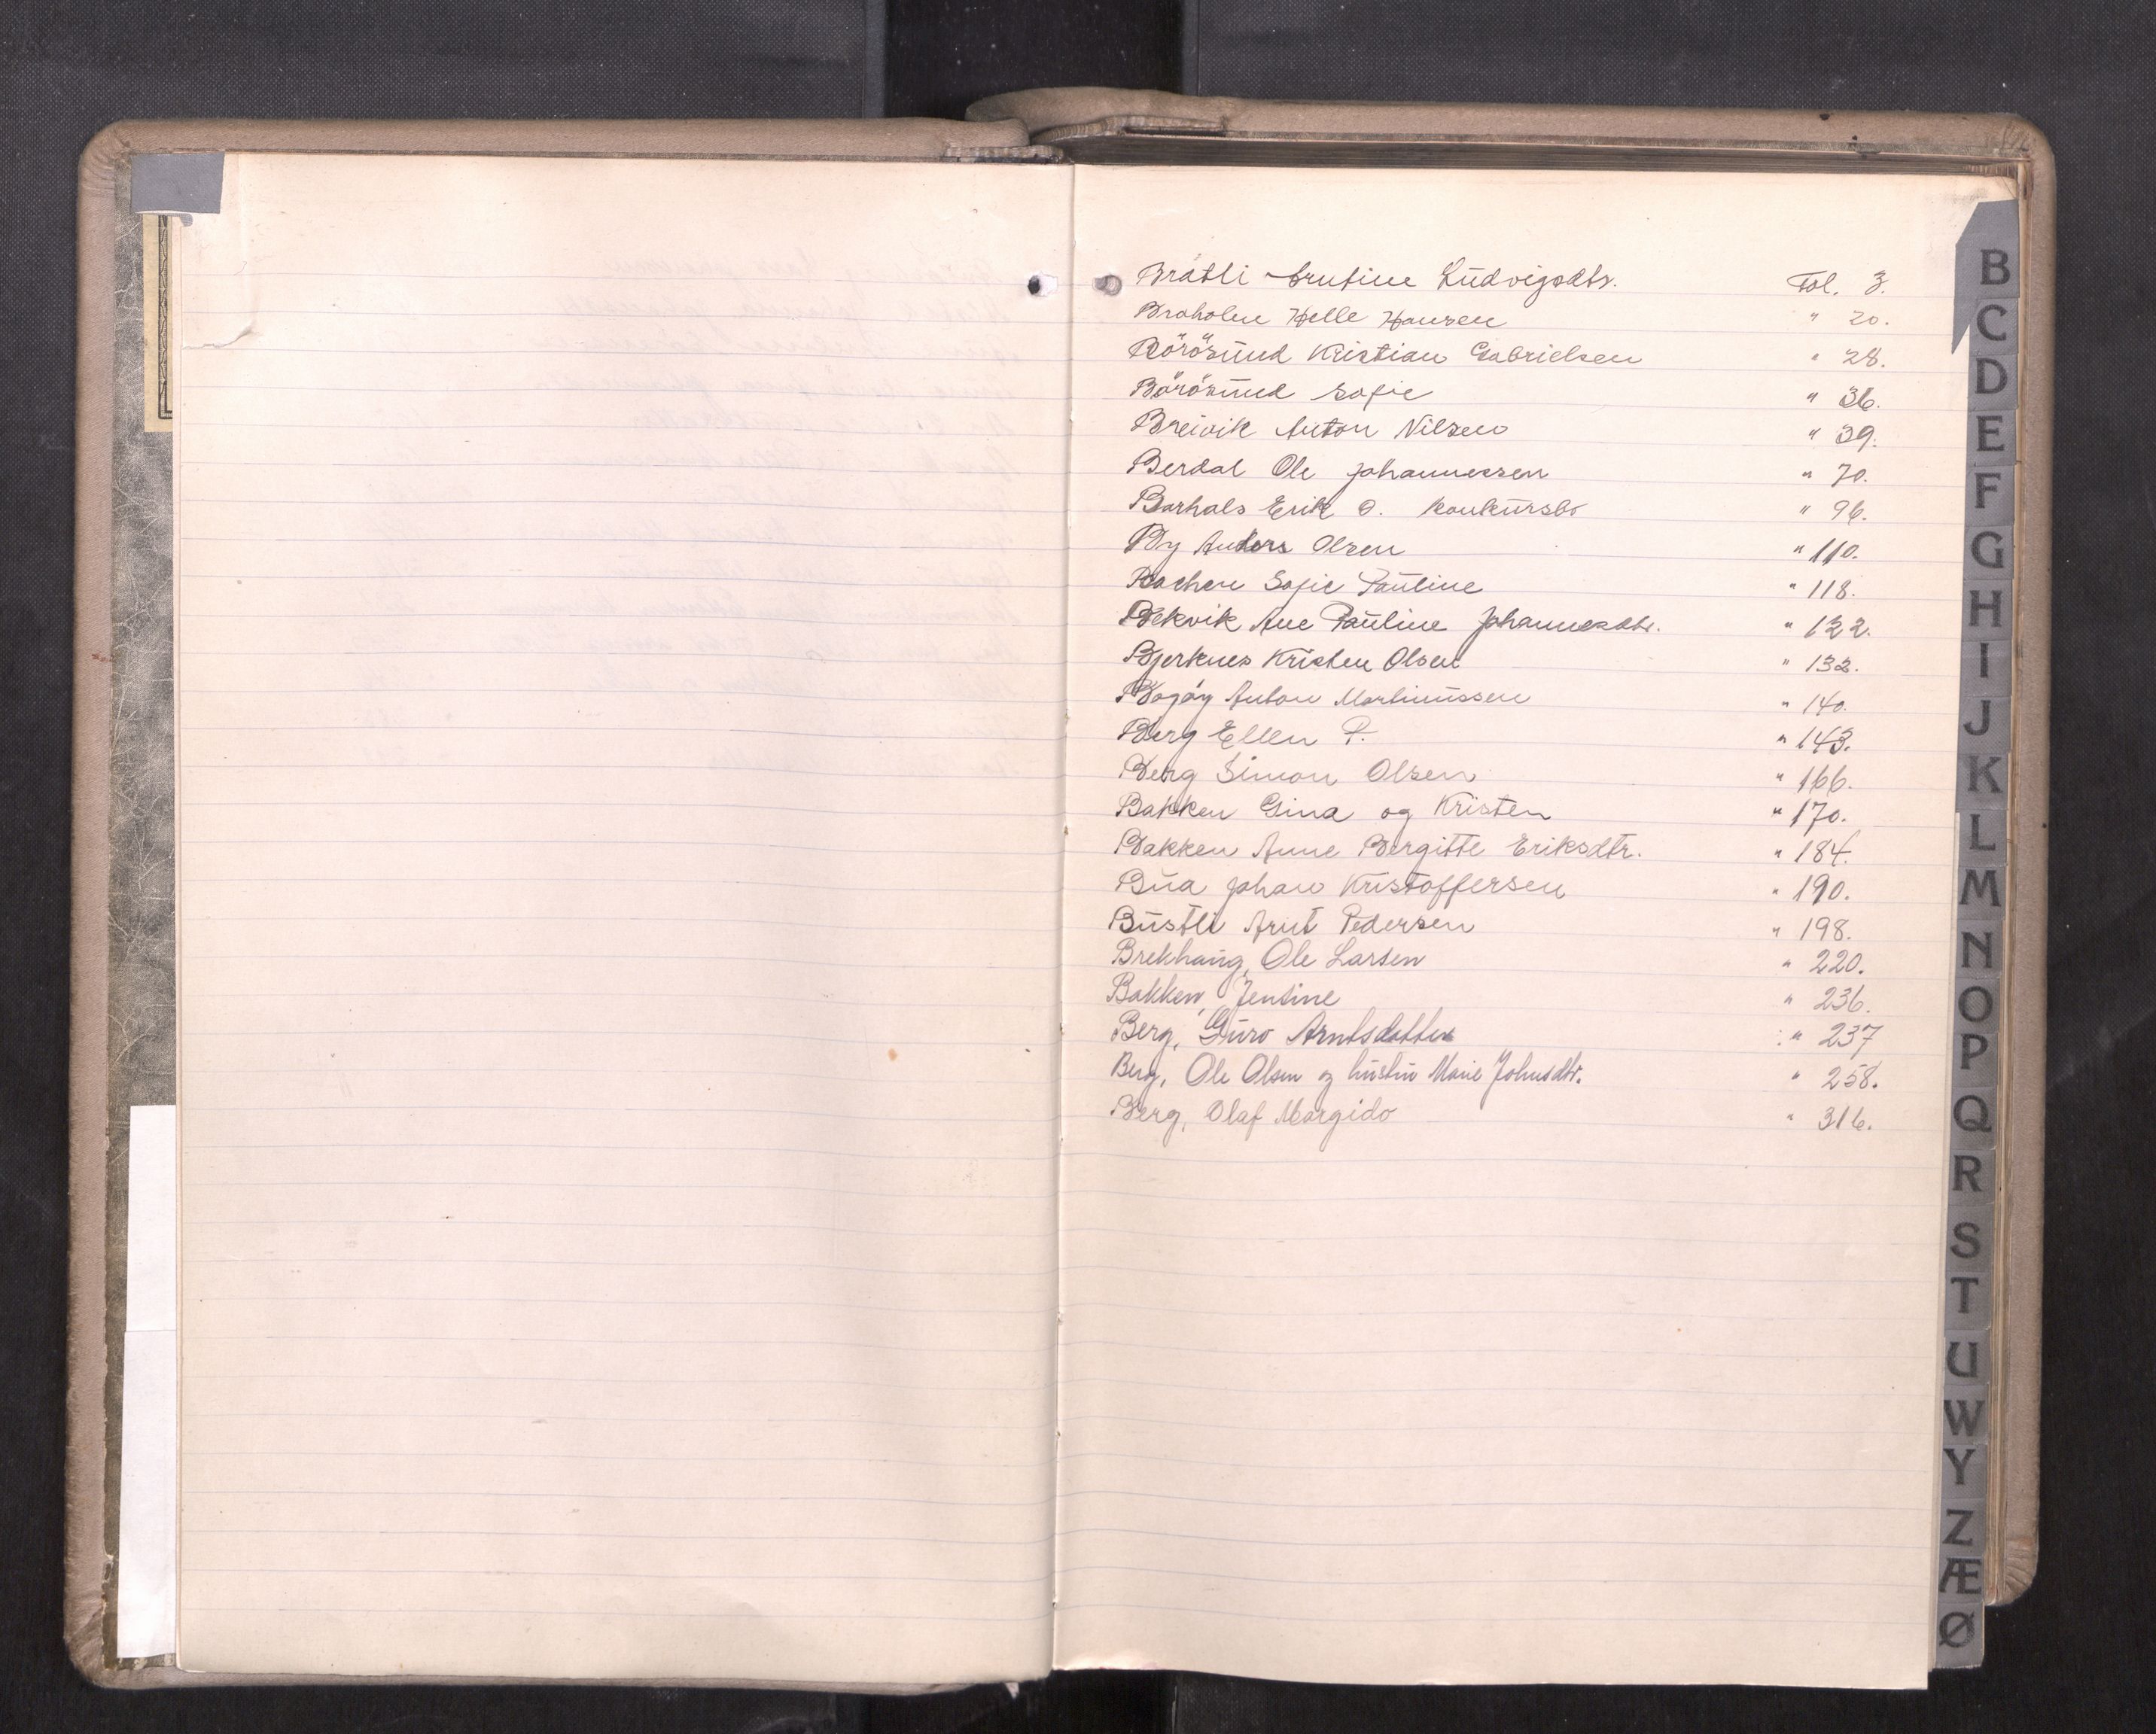 Bråtli Arntine Ludvigsdtr. Fol. 3.
Braholm Helle Hansen " 20.
Börösund Kristian Gabrielsen " 28.
Börösund Sofie " 36.
Breivik Anton Nilsen " 39.
Berdal Ole Johannessen " 70.
Barhals Erik O. Konkursbo " 96.
By Anders Olsen " 110.
Bachen Sofie Pauline " 118.
Bekvik Ane Pauline Johannesdtr. " 122.
Bjerknes Kristen Olsen " 132.
Bogöy Anton Martinussen " 140.
Berg Ellen P. " 143.
Berg Simon Olsen " 166.
Bakken Gina og Kristen " 170.
Bakken Anne Bergitte Eriksdtr. " 184.
Bua Johan Kristoffersen " 190.
Bustli Arnt Pedersen " 198.
Brekhaug, Ole Larsen " 220.
Bakken, Jensine " 236.
Berg, Guro Arntsdatter " 237
Berg, Ole Olsen og hustru Marie Johnsdtr. " 258.
Berg, Olaf Margido " 316.
B
C
D
E
F
G
H
I
J
K
L
M
N
O
P
Q
R
S
T
U
W
Y
Z
Æ
Ø